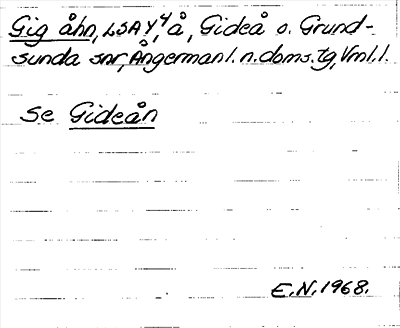 Gig åhn, LSA Y 4, å, Gideå o. Grund-
sunda snr, Ångermanl. n. doms. tg, Vml. l.
se Gideån
E.N. 1968.